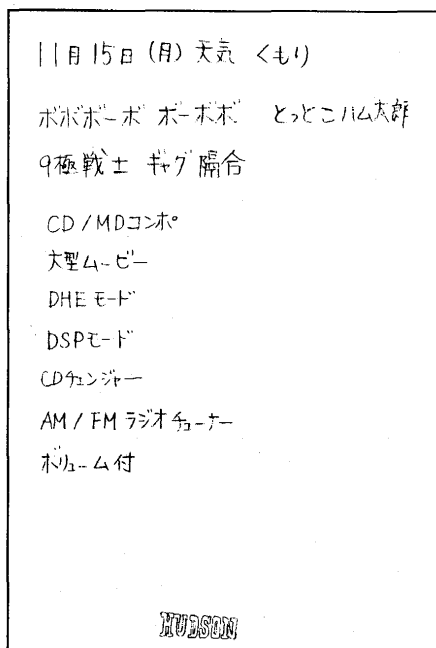 11月15日(月) 天気 くもり
ボボボーボ ボーボボ とっとこハム太郎
9極戦士 ギャグ隔合
CD/MDコンポ
大型ムービー
DHEモード
DSPモード
CDチェンジャー
AM/FMラジオチューナー
ボリューム付
HUDSON